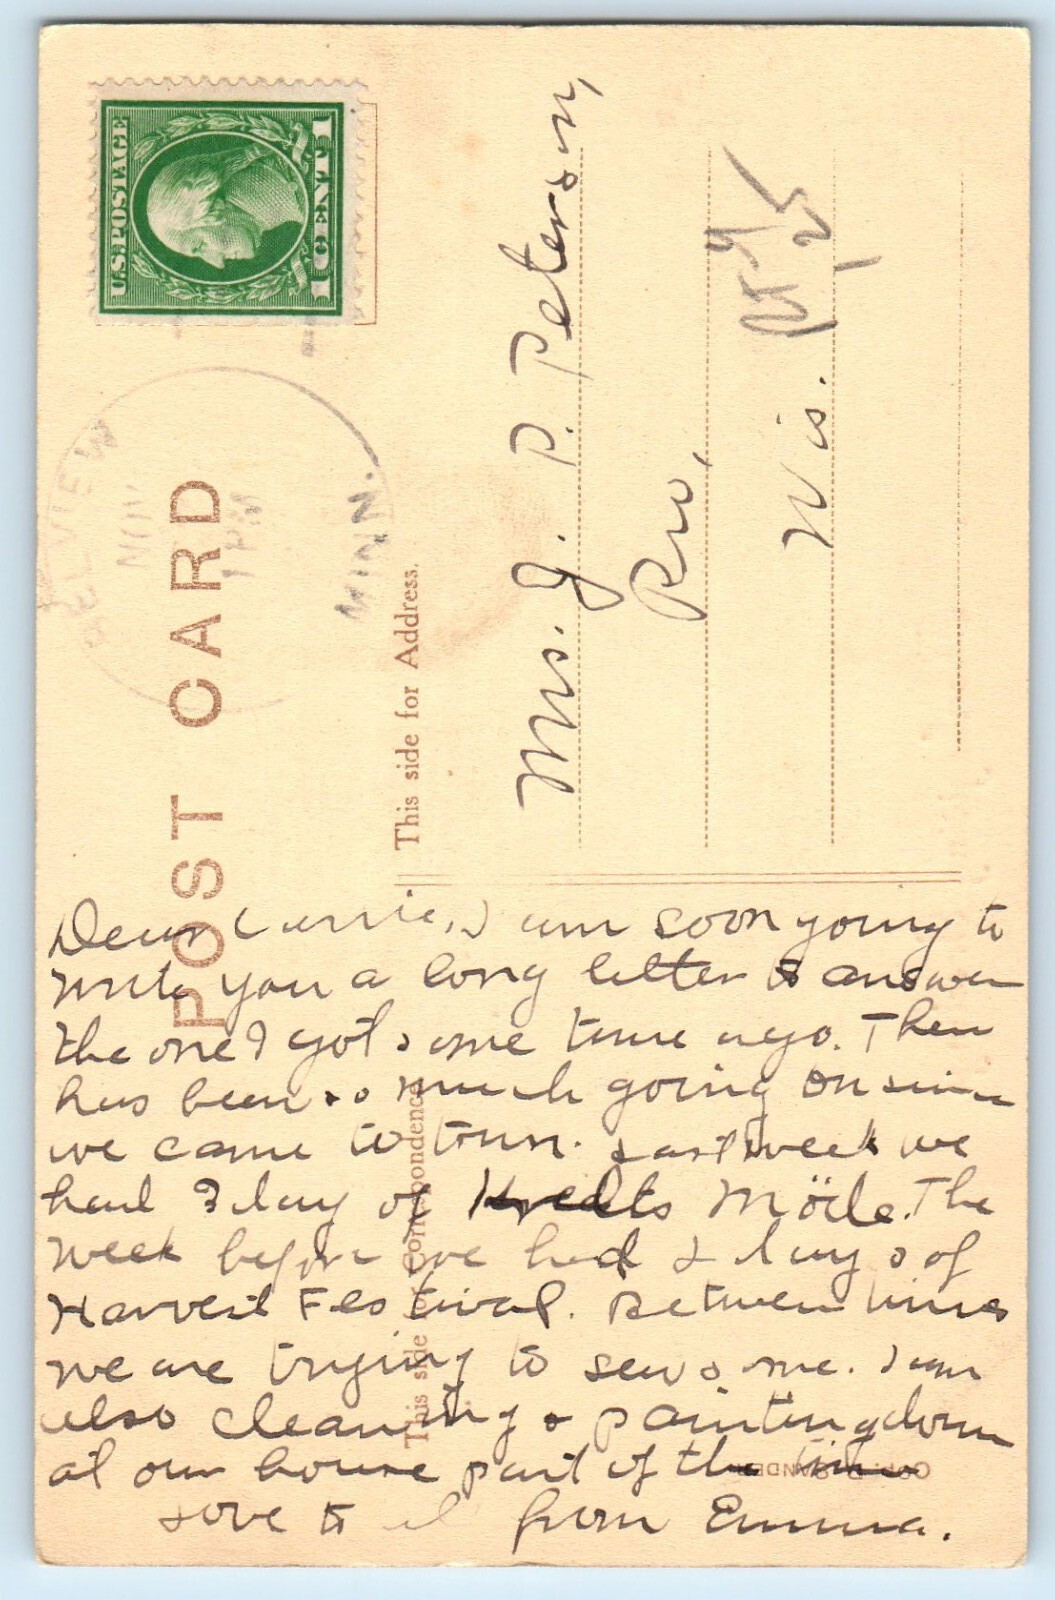 U.S. POSTAGE
1 CENT 1
MINN.
POST CARD
This side for Address.
Mrs. J. P. Peterson,
Rio,
Wis.
This side for Correspondence
Dear Carrie, I am soon going to
write you a long letter to answer
the one I got some time ago. There
has been so much going on since
we came to town. Last week we
had 3 day of Kredts Möde. The
week before we had 2 days of
Harvest Festival. Between times
we are trying to sew some. I am
also cleaning & painting down
at our house part of the time
Love to all from Emma.